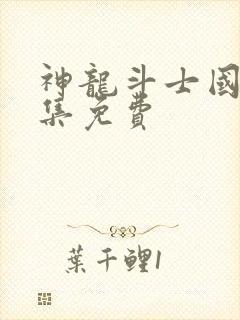 神龍斗士國
集免費
葉千鯉1